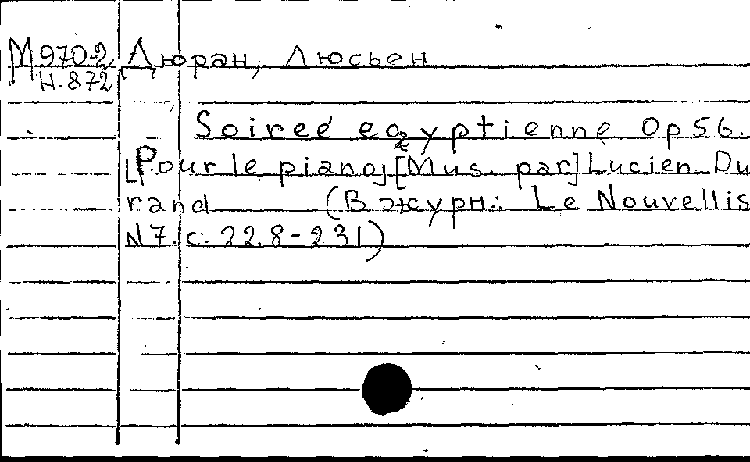 М970-2 Дюран, Люсьен
Н.872
Soireé egyptienne Op 56.
[Pour le piano] [Mus. par] Lucien Du
rand (В журн.: Le Nouvellis
N 7. с. 228-231)